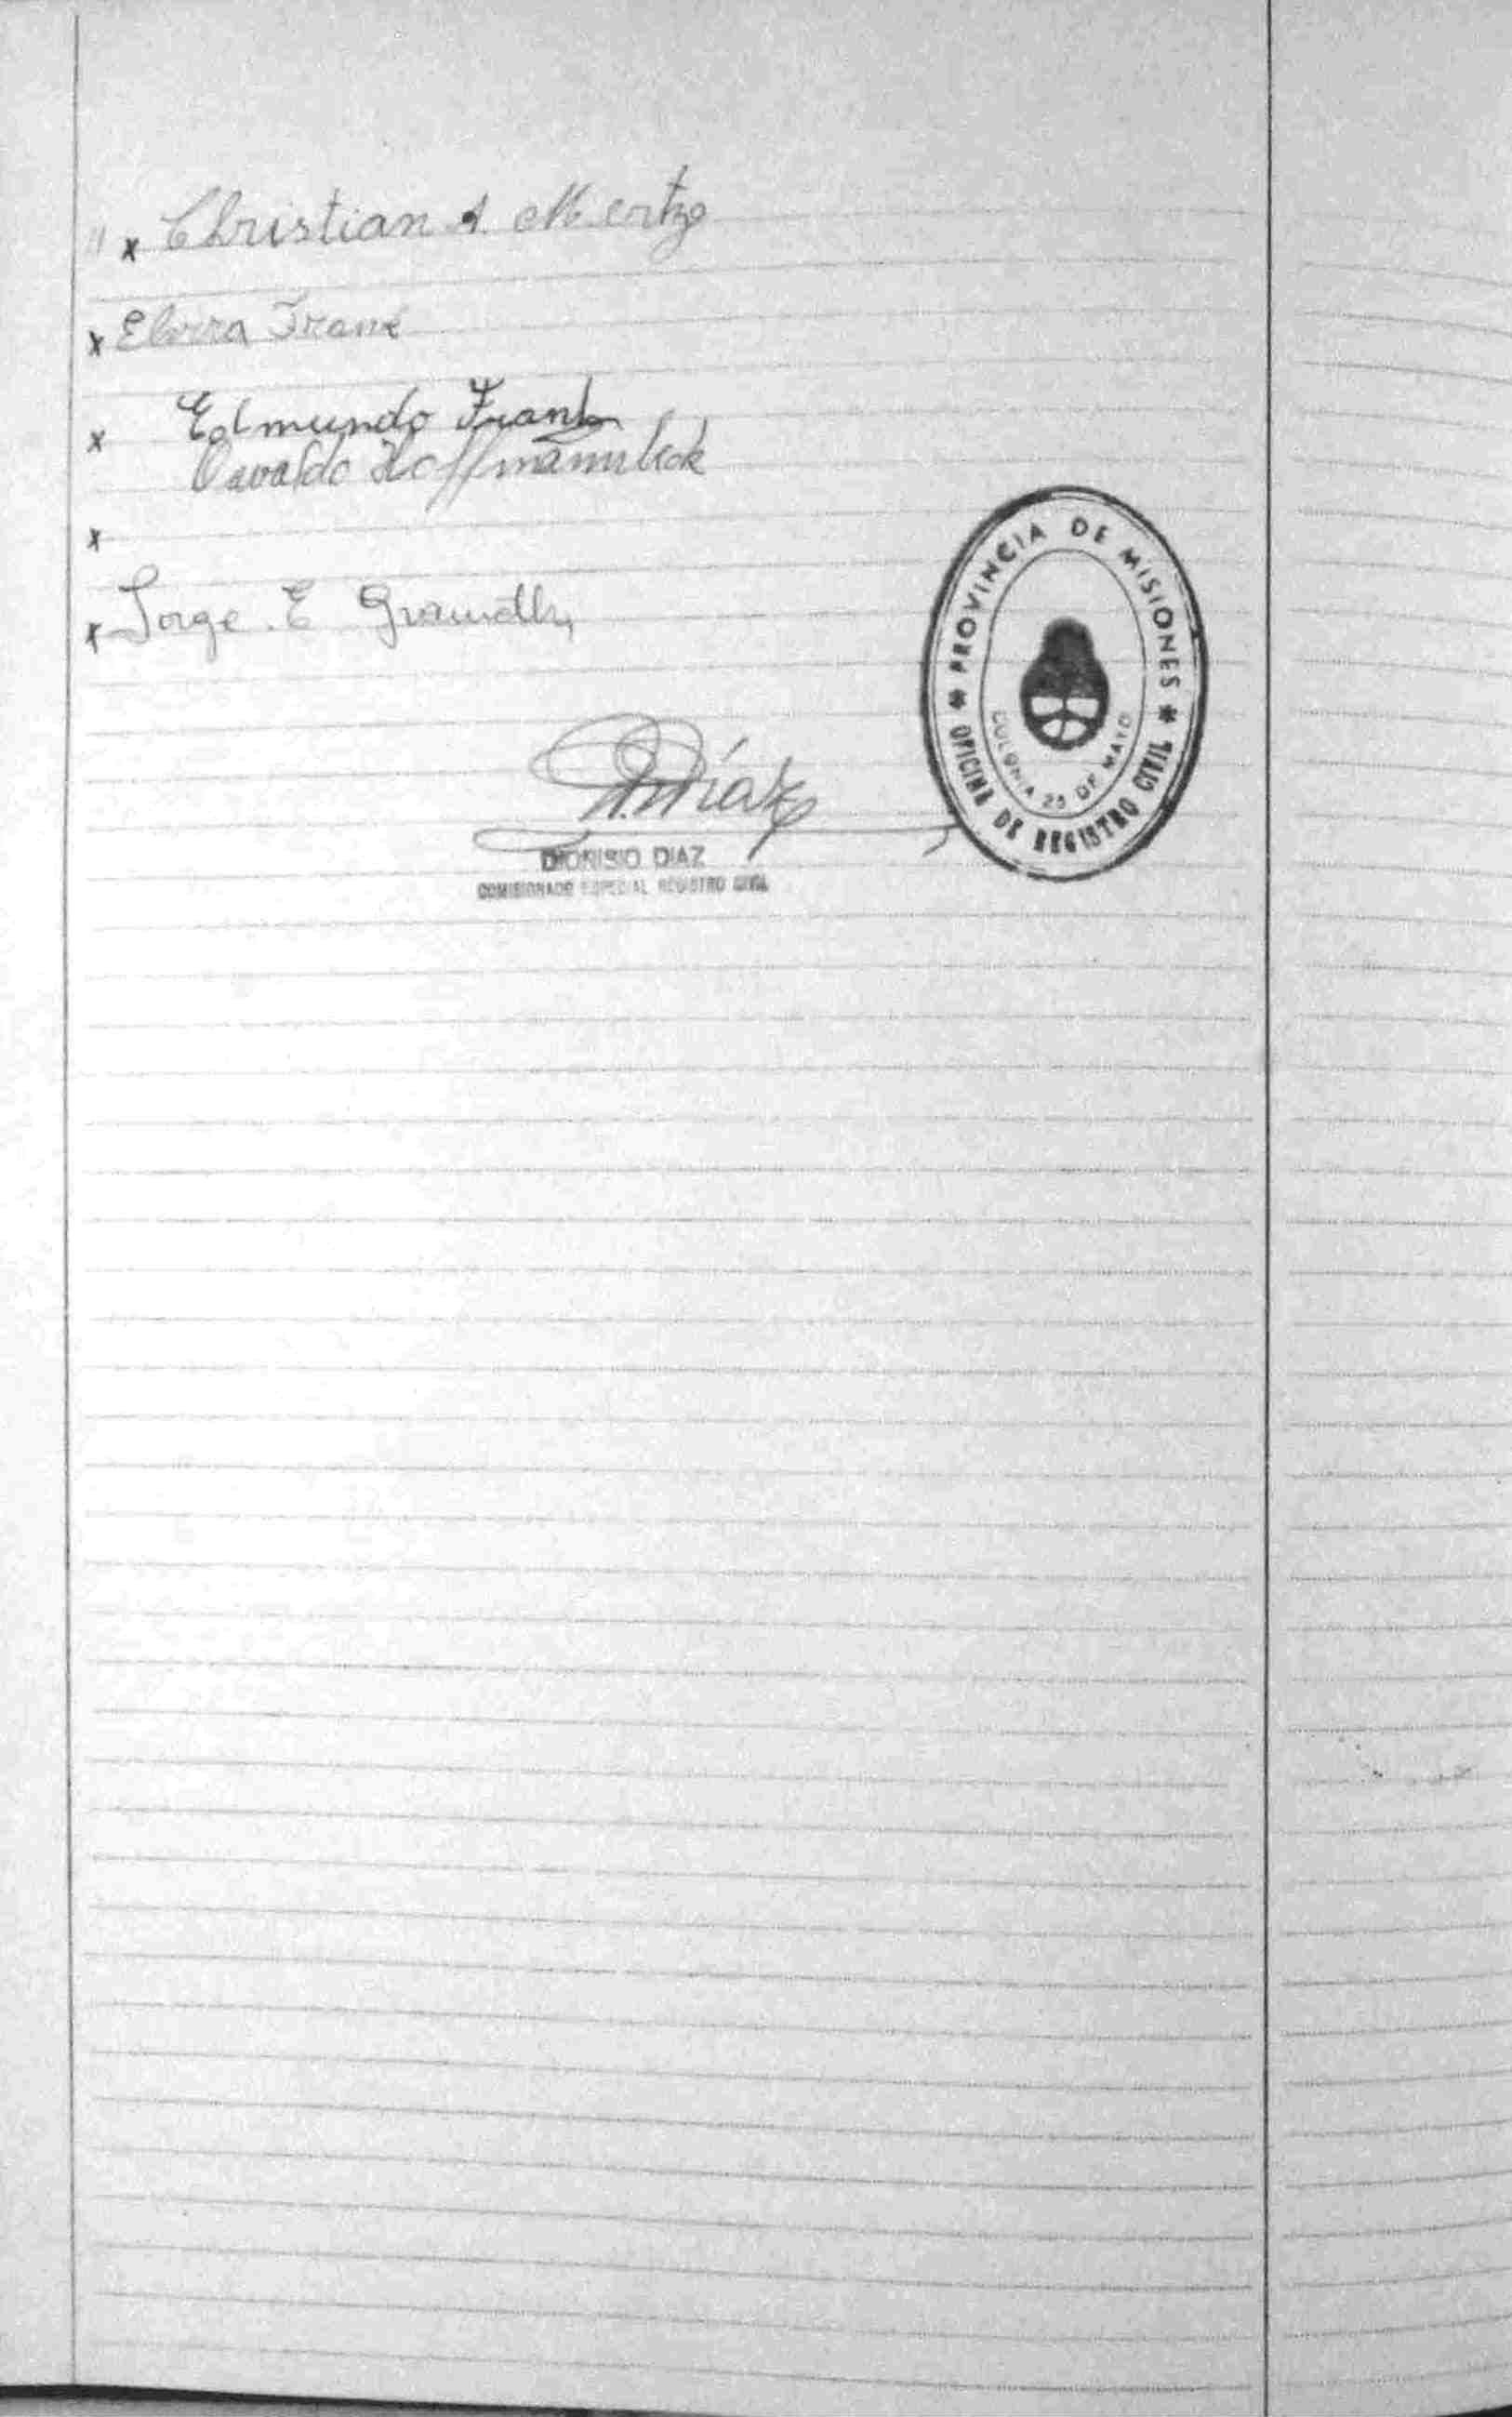 " x Christian A. Mertz
x Elvira Frank
x Edmundo Frank
Osvaldo Hoffmann
x
x Jorge E
Diaz
DIONISIO DIAZ
COMISIONADO ESPECIAL REGISTRO CIVIL
* PROVINCIA DE MISIONES *
OFICINA DE REGISTRO CIVIL
COLONIA 25 DE MAYO